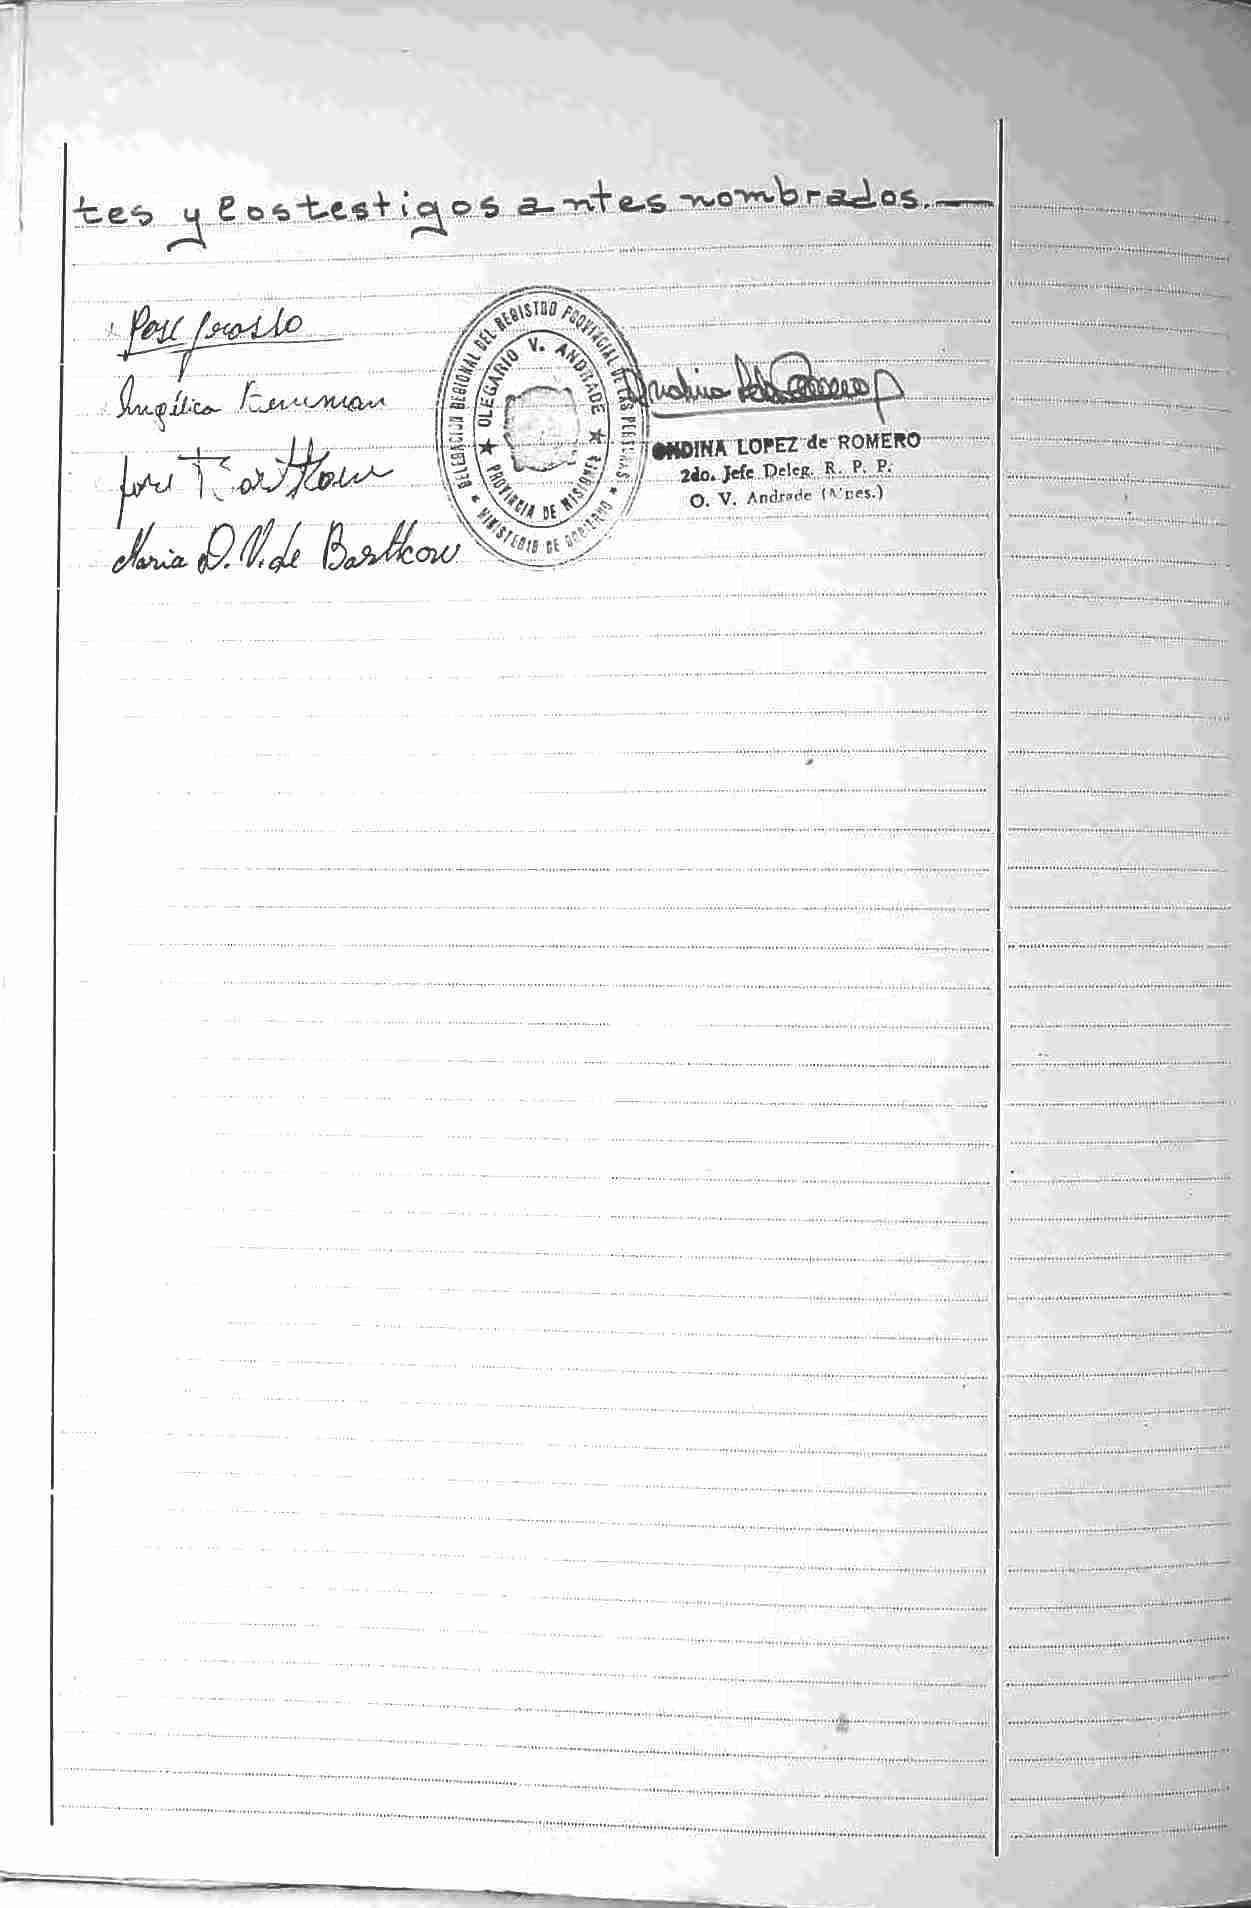 tes y los testigos antes nombrados.—
Angélica
José Bartkow
Maria D. V. de Bartkow
DELEGACION REGIONAL DEL REGISTRO PROVINCIAL DE LAS PERSONAS
★ MINISTERIO DE GOBIERNO ★
OLEGARIO V. ANDRADE
★ PROVINCIA DE MISIONES ★
ONDINA LOPEZ de ROMERO
2do. Jefe Deleg. R. P. P.
O. V. Andrade (Mnes.)